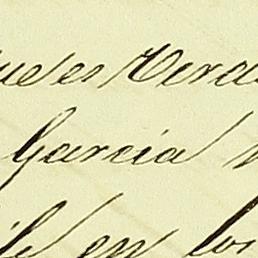 ue es Verda
Garcia
en los